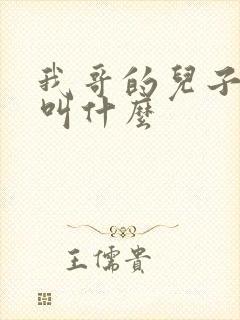 我哥的兒子
叫什麼
王儒貴